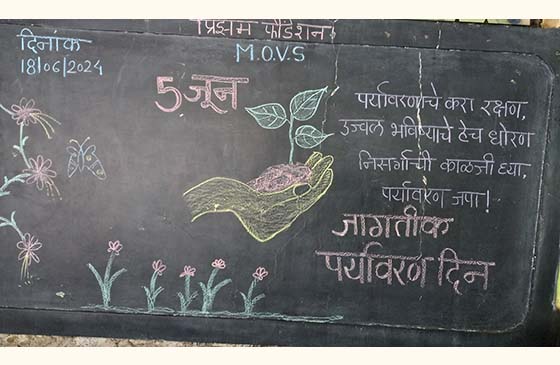 प्रिझम फौंडेशन
M.O.V.S
दिनांक
18/06/2024
5 जून
पर्यावरणाचे करा रक्षण,
उज्वल भविष्याचे हेच धोरण
निसर्गाची काळजी घ्या,
पर्यावरण जपा!
जागतीक
पर्यावरण दिन